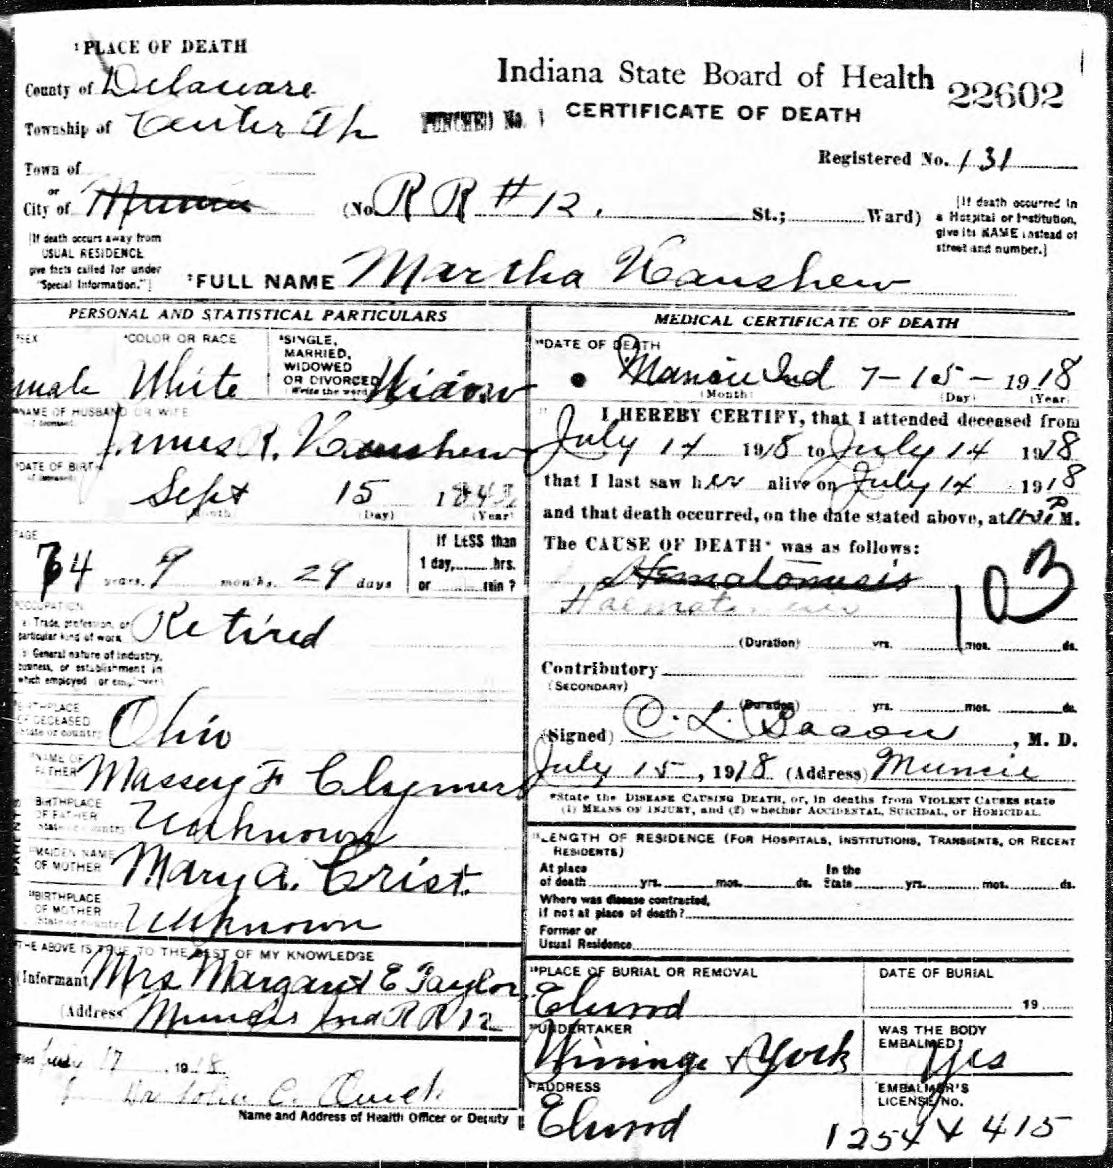 ¹PLACE OF DEATH
County of Delaware
Township of Center Tp
Town of
or
City of Muncie
[If death occurs away from
USUAL RESIDENCE
give facts called for under
"Special Information."]
Indiana State Board of Health 22602
PUNCHED No. 1 CERTIFICATE OF DEATH
Registered No. 131
(No. RR #12. St.; Ward)
[If death occurred in
a Hospital or Institution,
give its NAME instead of
street and number.]
²FULL NAME Martha Hanshew
PERSONAL AND STATISTICAL PARTICULARS
³SEX
male
⁴COLOR OR RACE
White
⁵SINGLE,
MARRIED,
WIDOWED
OR DIVORCED
(Write the word)
Widow
NAME OF HUSBAND OR WIFE
James R. Hanshew
DATE OF BIRTH
Sept 15 184
(Month) (Day) (Year)
AGE
74 years, 9 months, 29 days
If LESS than
1 day,......hrs.
or ......min?
OCCUPATION
a Trade, profession, or
particular kind of work
Retired
b General nature of industry,
business, or establishment in
which employed (or employer)
BIRTHPLACE
OF DECEASED
State or country
Ohio
NAME OF
FATHER
Massey F Clymer
BIRTHPLACE
OF FATHER
State or country
Unknown
MAIDEN NAME
OF MOTHER
Mary A. Crist
BIRTHPLACE
OF MOTHER
State or country
Unknown
THE ABOVE IS TRUE TO THE BEST OF MY KNOWLEDGE
(Informant Mrs Margaret E Taylor
(Address Muncie Ind RR 12
Filed July 17 1918
Dr John C. Quick
Name and Address of Health Officer or Deputy
MEDICAL CERTIFICATE OF DEATH
DATE OF DEATH
Muncie Ind 7-15-1918
(Month) (Day) (Year)
I HEREBY CERTIFY, that I attended deceased from
July 14 1918 to July 14 1918
that I last saw her alive on July 14 1918
and that death occurred, on the date stated above, at P M.
The CAUSE OF DEATH* was as follows:
Hematomesis
103
(Duration) yrs. mos. ds.
Contributory
(SECONDARY)
(Duration) yrs. mos. ds.
(Signed) O. L. Bacon, M. D.
July 15, 1918 (Address) Muncie
*State the DISEASE CAUSING DEATH, or, in deaths from VIOLENT CAUSES state
(1) MEANS OF INJURY, and (2) whether ACCIDENTAL, SUICIDAL, or HOMICIDAL.
LENGTH OF RESIDENCE (FOR HOSPITALS, INSTITUTIONS, TRANSIENTS, OR RECENT
RESIDENTS)
At place In the
of death yrs. mos. ds. State yrs. mos. ds.
Where was disease contracted,
if not at place of death?
Former or
Usual Residence
PLACE OF BURIAL OR REMOVAL
Elwood
DATE OF BURIAL
19
UNDERTAKER
Wininge & York
WAS THE BODY
EMBALMED?
Yes
ADDRESS
Elwood
EMBALMER'S
LICENSE No.
1254 & 415